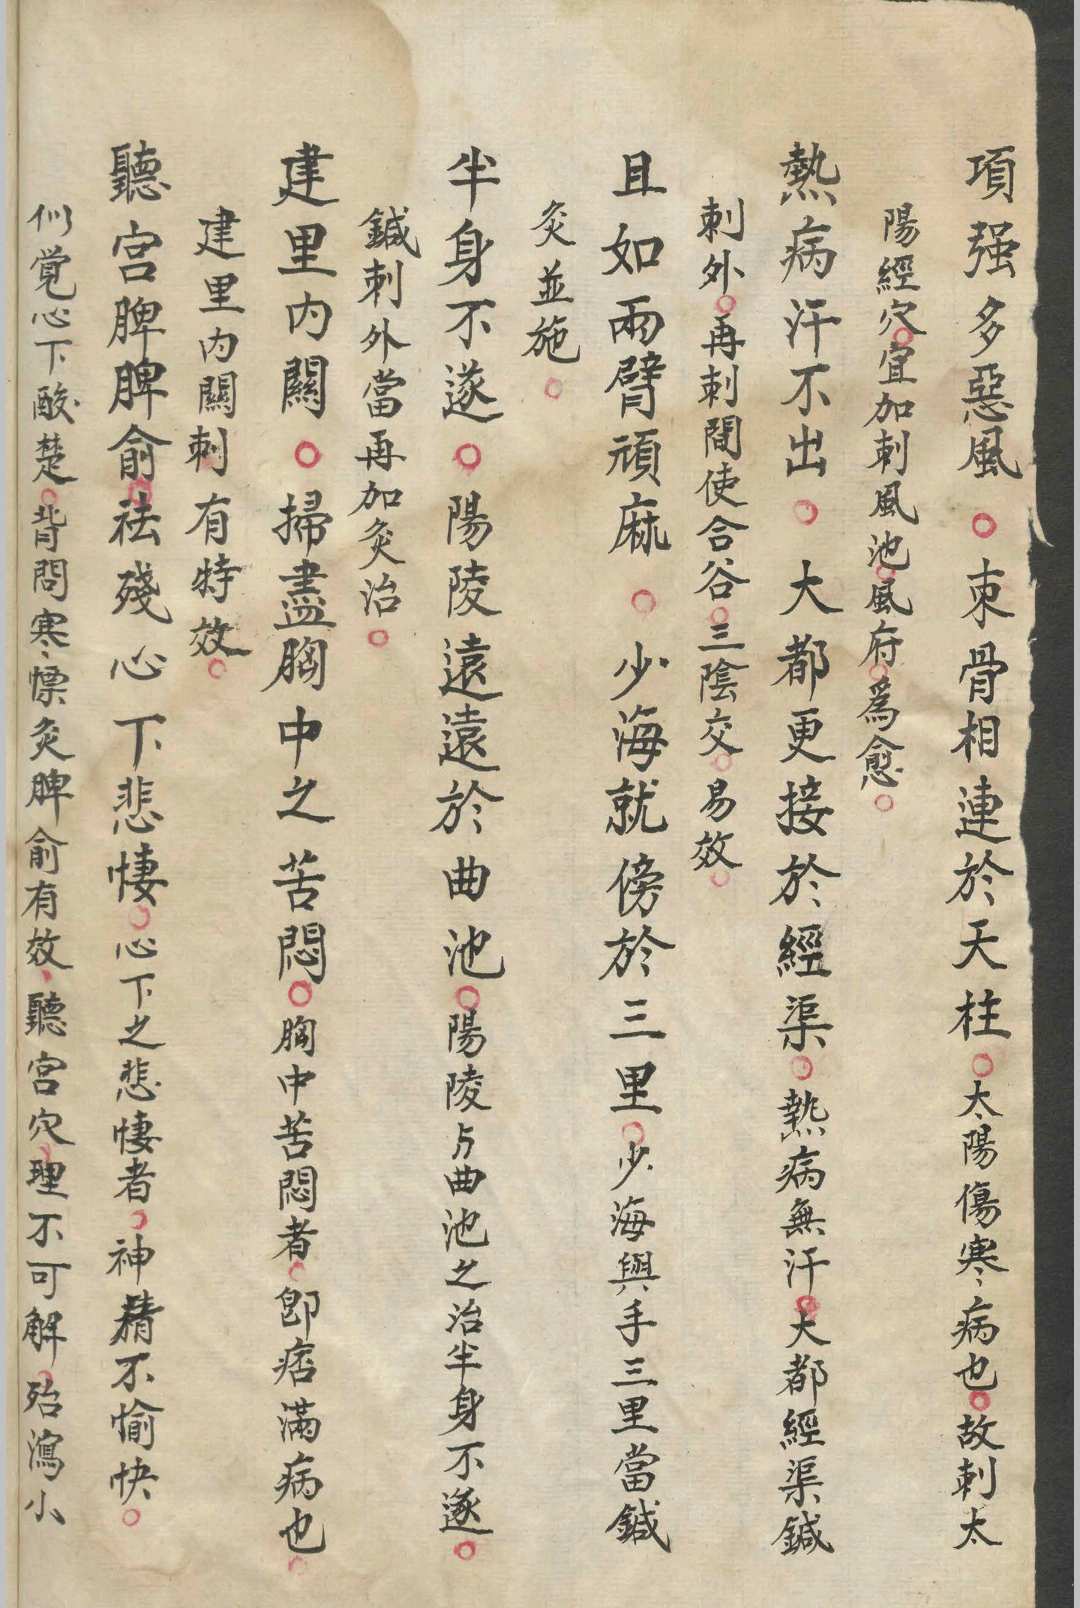 項强多惡風○束骨相連於天柱○太陽傷寒病也○故刺太
陽經穴○宜加刺風池○風府○爲愈○
熱病汗不出○大都更接於經渠○熱病無汗○大都經渠鍼
刺外○再刺間使合谷○三陰交○易效○
且如兩臂頑麻○少海就傍於三里○少海與手三里當鍼
灸並施○
半身不遂○陽陵遠遠於曲池○陽陵与曲池之治半身不遂○
鍼刺外當再加灸治○
建里內關○掃盡胸中之苦悶○胸中苦悶者○卽痞滿病也○
建里內關刺有特效○
聽宮脾脾俞○祛殘心下悲悽○心下之悲悽者○神精不愉快○
似覚心下酸楚○背問寒慄灸脾俞有效、聽宮穴○理不可解○殆瀉小